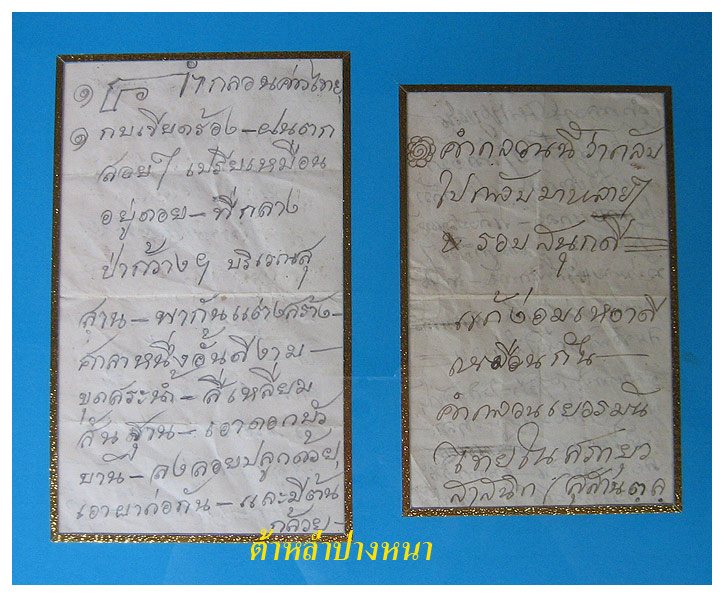 ๑ คำกลอนคร่าวไทย
๑ กบเขียดร้อง - ฝนตก
สอยๆ เปรียเหมือน
อยู่ดอย - ที่กลาง
ป่ากว้างๆ บริเวณสุ
สาน - พากันแต่งสร้าง -
ศาลาหนึ่งอั้นดีงาม -
ขุดสระน้ำ - สี่เหลี่ยม
สันฐาน - เอาดอกบัว
บาน - ลงลอยปลูกด้วย
เอายาก่อกัน - และมีต้น
กล้วย -
คำกลอนนี้ว่ากลับ
ไปกลับมาหลายๆ
รอบสนุกดี
แก้ง่อมเหงาดี
เหมือนกัน
คำกลอนเยอรมัน
ไทยใน
สุสานตุลุ
ต้าหล่ำปางหนา